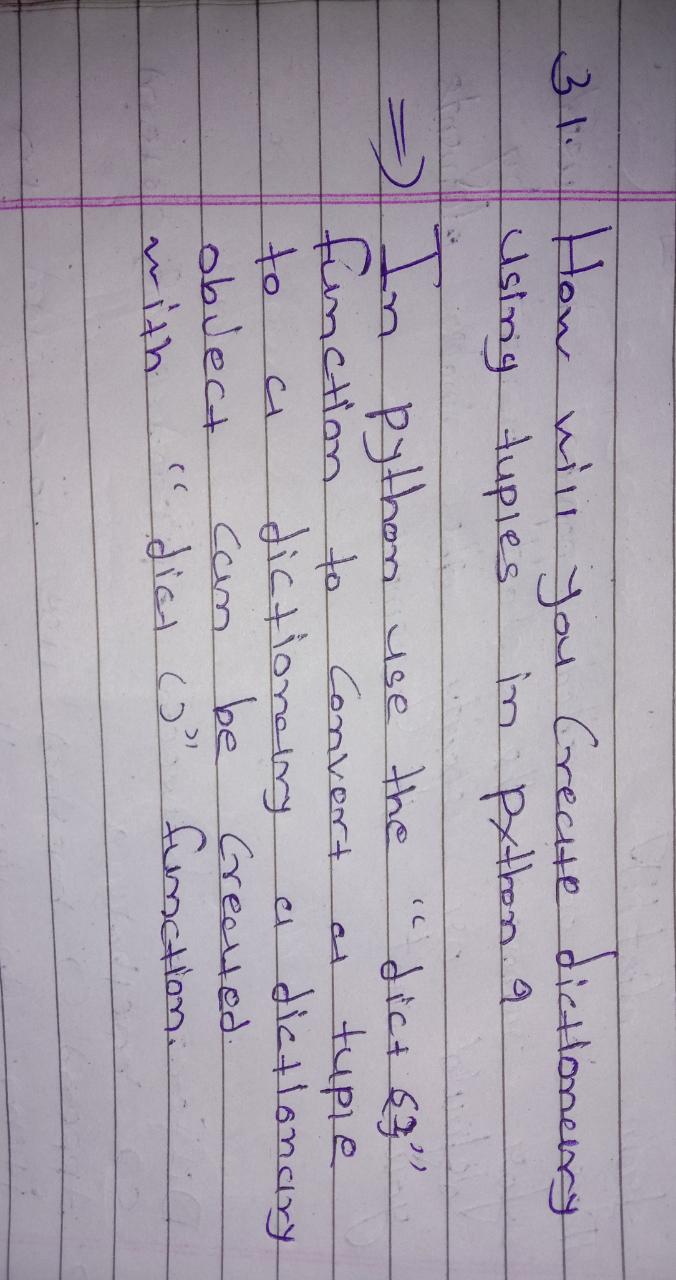 31. How will you Create dictionary
using tuples in python ?
⇒ In python use the "dict {}"
function to convert a tuple
to a dictionary a dictionary
object can be Created.
with "dict ()" function.